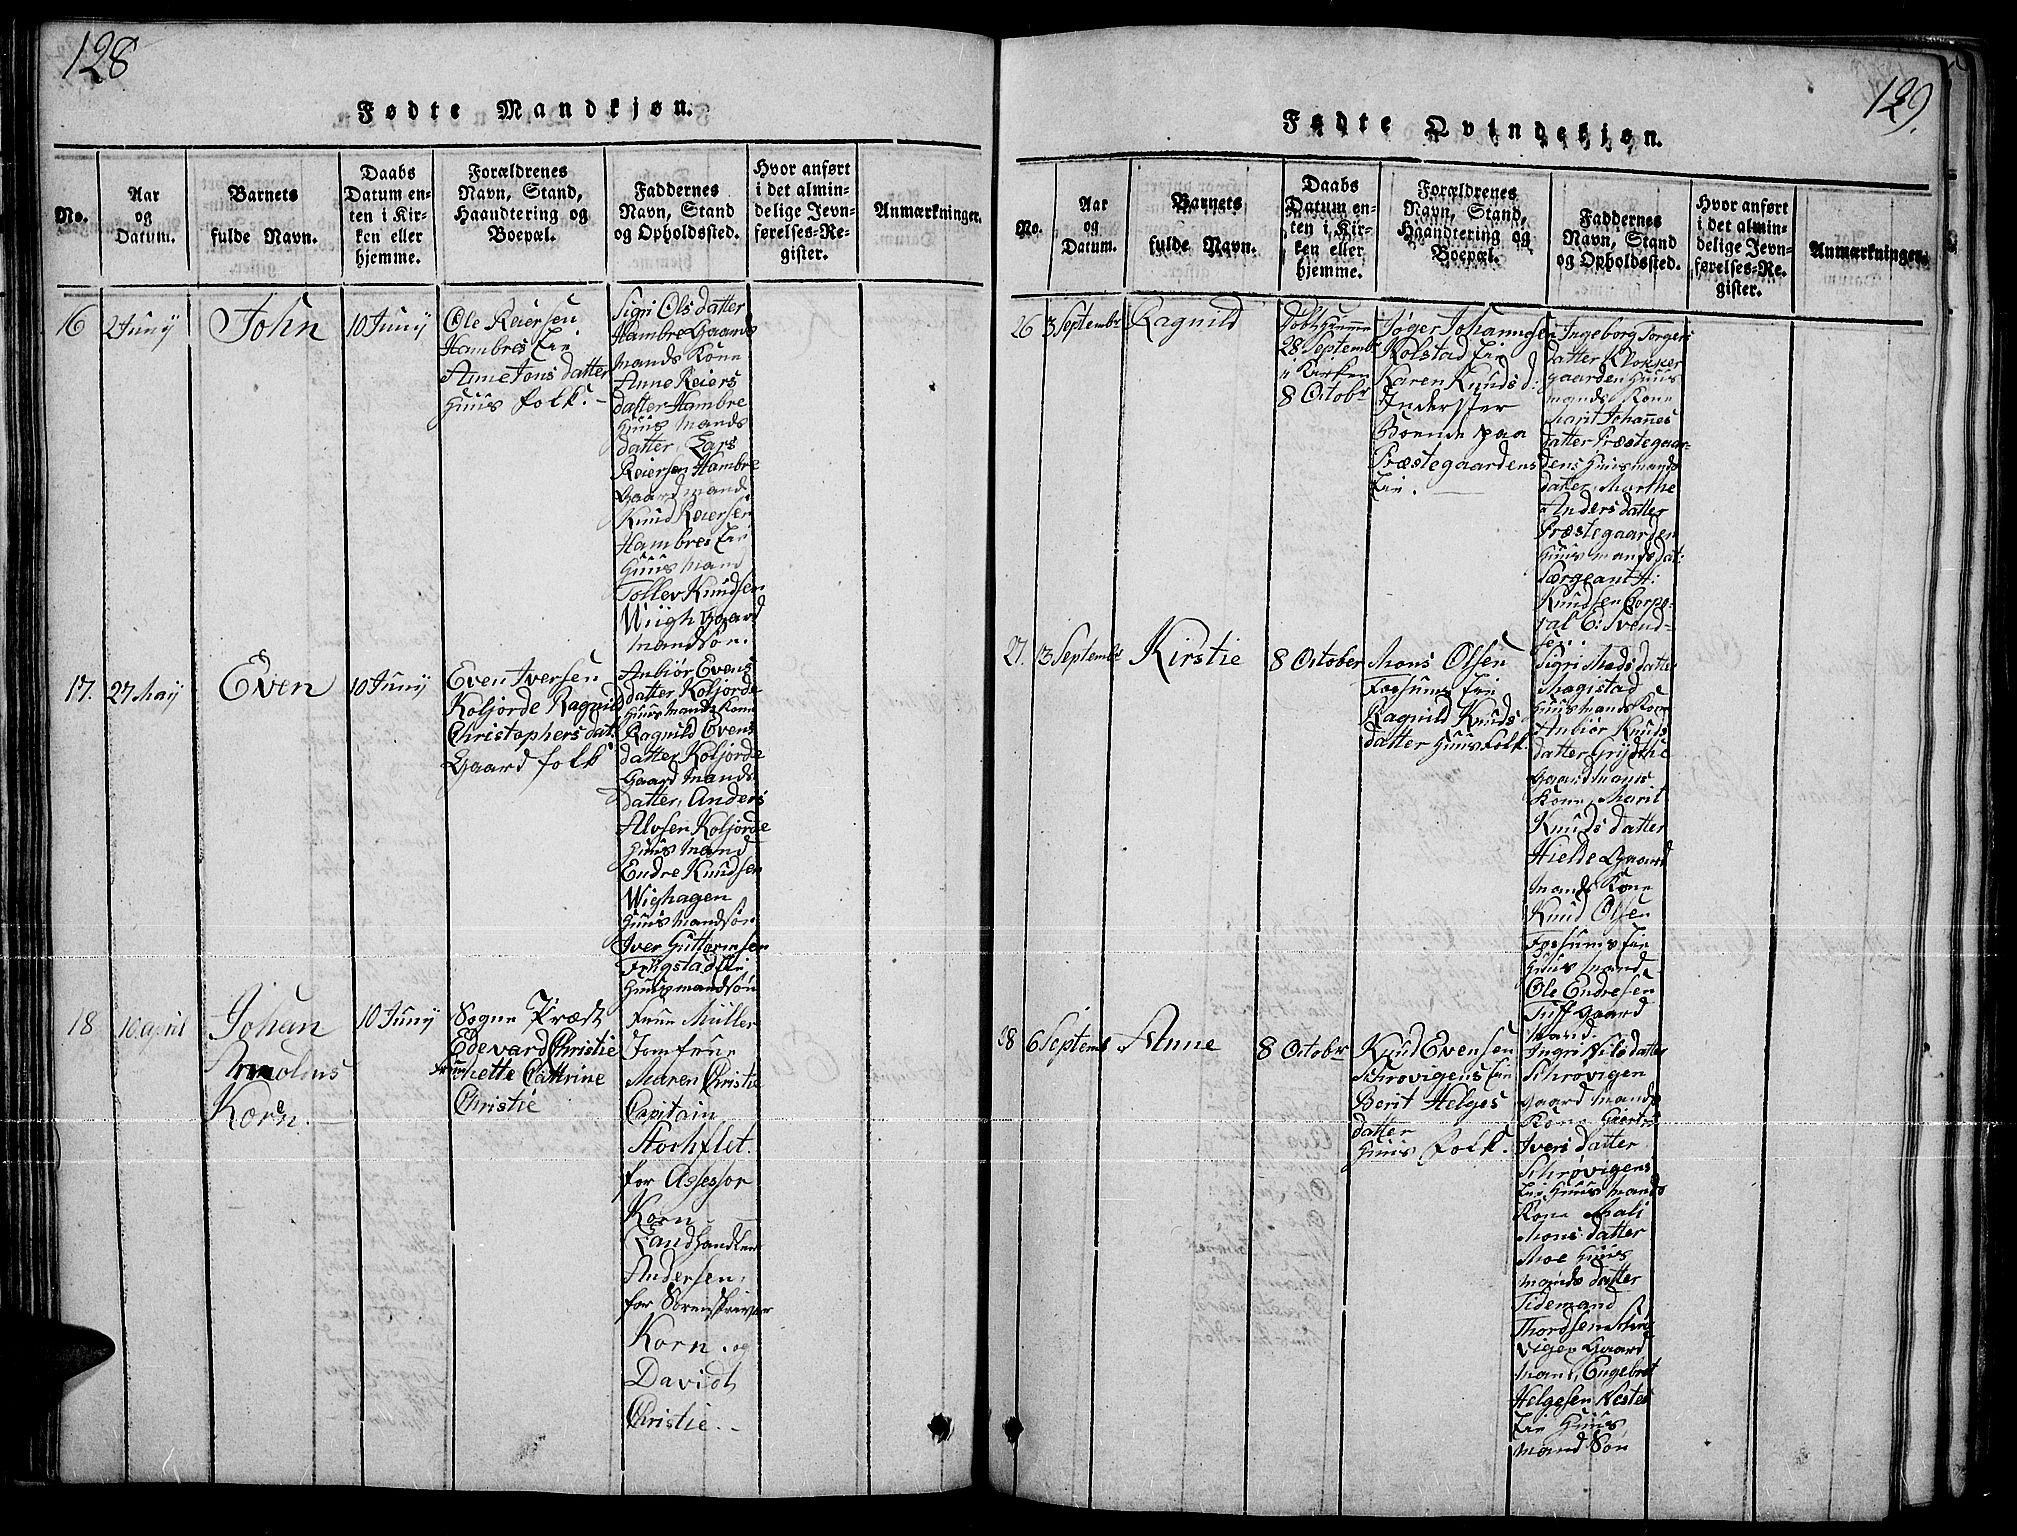 128
Fødte Mandkjøn.
No.
Aar
og
Datum.
Barnets
fulde Navn.
Daabs
Datum en-
ten i Kir-
ken eller
hjemme.
Forældrenes
Navn, Stand,
Haandtering og
Boepæl.
Faddernes
Navn, Stand
og Opholdssted.
Hvor anført
i det almin-
delige Jevn-
førelses-Re-
gister.
Anmærkninger.
16
2 Junij
John
10 Junij
Ole Reiersen
Hambres Eie
Anne Jons datter
Huus folk.-
Sigri Ols datter
Hambre Gaard
mands Kone
Anne Reiers
datter Hambre
Huus mands
datter Lars
Reiersen Hambre
Gaard mand
Knud Reiersen
Hambres Eie
Huus mand
Tollev Knudsen
Wiigh Gaard
mandsøn.
17.
27 Maij
Even
10 Junij
Even Iversen
Koljorde Ragnild
Christophers dat.
Gaard folk
Anbiør Evens
datter Koljorde
Huus mands Kone
Ragnild Evens
datter Koljorde
Gaard mands
datter, Anders
Alvsen Koljorde
Huus mand
Endre Knudsen
Wighagen
Huus mandsøn
Iver Guttormsen
Frygstad Eie
Huus mandsøn
18
10 april
Johan
Arnoldus
Koren.
10 Junij
Sogne Præst
Edevard Christie
Frue Mette Cattrine
Christie
Frue Müller
Jomfrue
Maren Christie
Capitain
Stochflet.
for Assessor
Korn
Landhandler
Andersen,
for Sorenskriver
Korn. og
David
Christie.-
129.
Fødte Qvindekjøn.
No.
Aar
og
Datum.
Barnets
fulde Navn.
Daabs
Datum en-
ten i Kir-
ken eller
hjemme.
Forældrenes
Navn, Stand,
Haandtering og
Boepæl.
Faddernes
Navn, Stand
og Opholdssted.
Hvor anført
i det almin-
delige Jevn-
førelses-Re-
gister.
Anmærkninger.
26
3 Septembr
Ragnild
Døbt Hiemme
28 Septembr
i Kirken
8 Octobr
Jøger Johannesen
Kolstad Eie
Karen Knuds d:
Inderster
Boende paa
Præstegaardens
Eie.
Ingeborg Jorgers
datter Klokker
gaarden Huus
mands Kone
Marit Johanes
datter Præstegaar-
dens Huusmands
datter, Marthe
Anders datter
Præstegaarden
Huus mands dat:
Særgeant H:
Knudsen Corpo-
ral E: Svend-
sen.
27.
13 Septembr
Kirstie
8 October
Mons Olsen
Fossums Eie
Ragnild Knuds
datter Huus folk
Sigri Mads datter
Magistad
Huus mands Kone
Anbiør Knuds
datter Grythe
Gaard mans
Kone, Marit
Knuds datter
Hielde Gaard
mands Kone
Knud Olsen
Fossums Eie
Huus mand
Ole Endresen
Tuff Gaard
mand.
28
6 Septemb
Anne
8 Octobr
Knud Evensen
Schrøvigens Eie
Berit Helges
datter
Huus folk.
Ingri Nils datter
Schrøvigen
Gaard mands
Kone Giertru
Ivers datter
Schrøvigens
Eie Huus mands
Kone Mali
Mons datter
Moe Huus
mands datter
Tidemand
Thordsen Schrø
vigen Gaard
mand, Engebret
Helgesen Nestes
Eie Huus
mand Søn